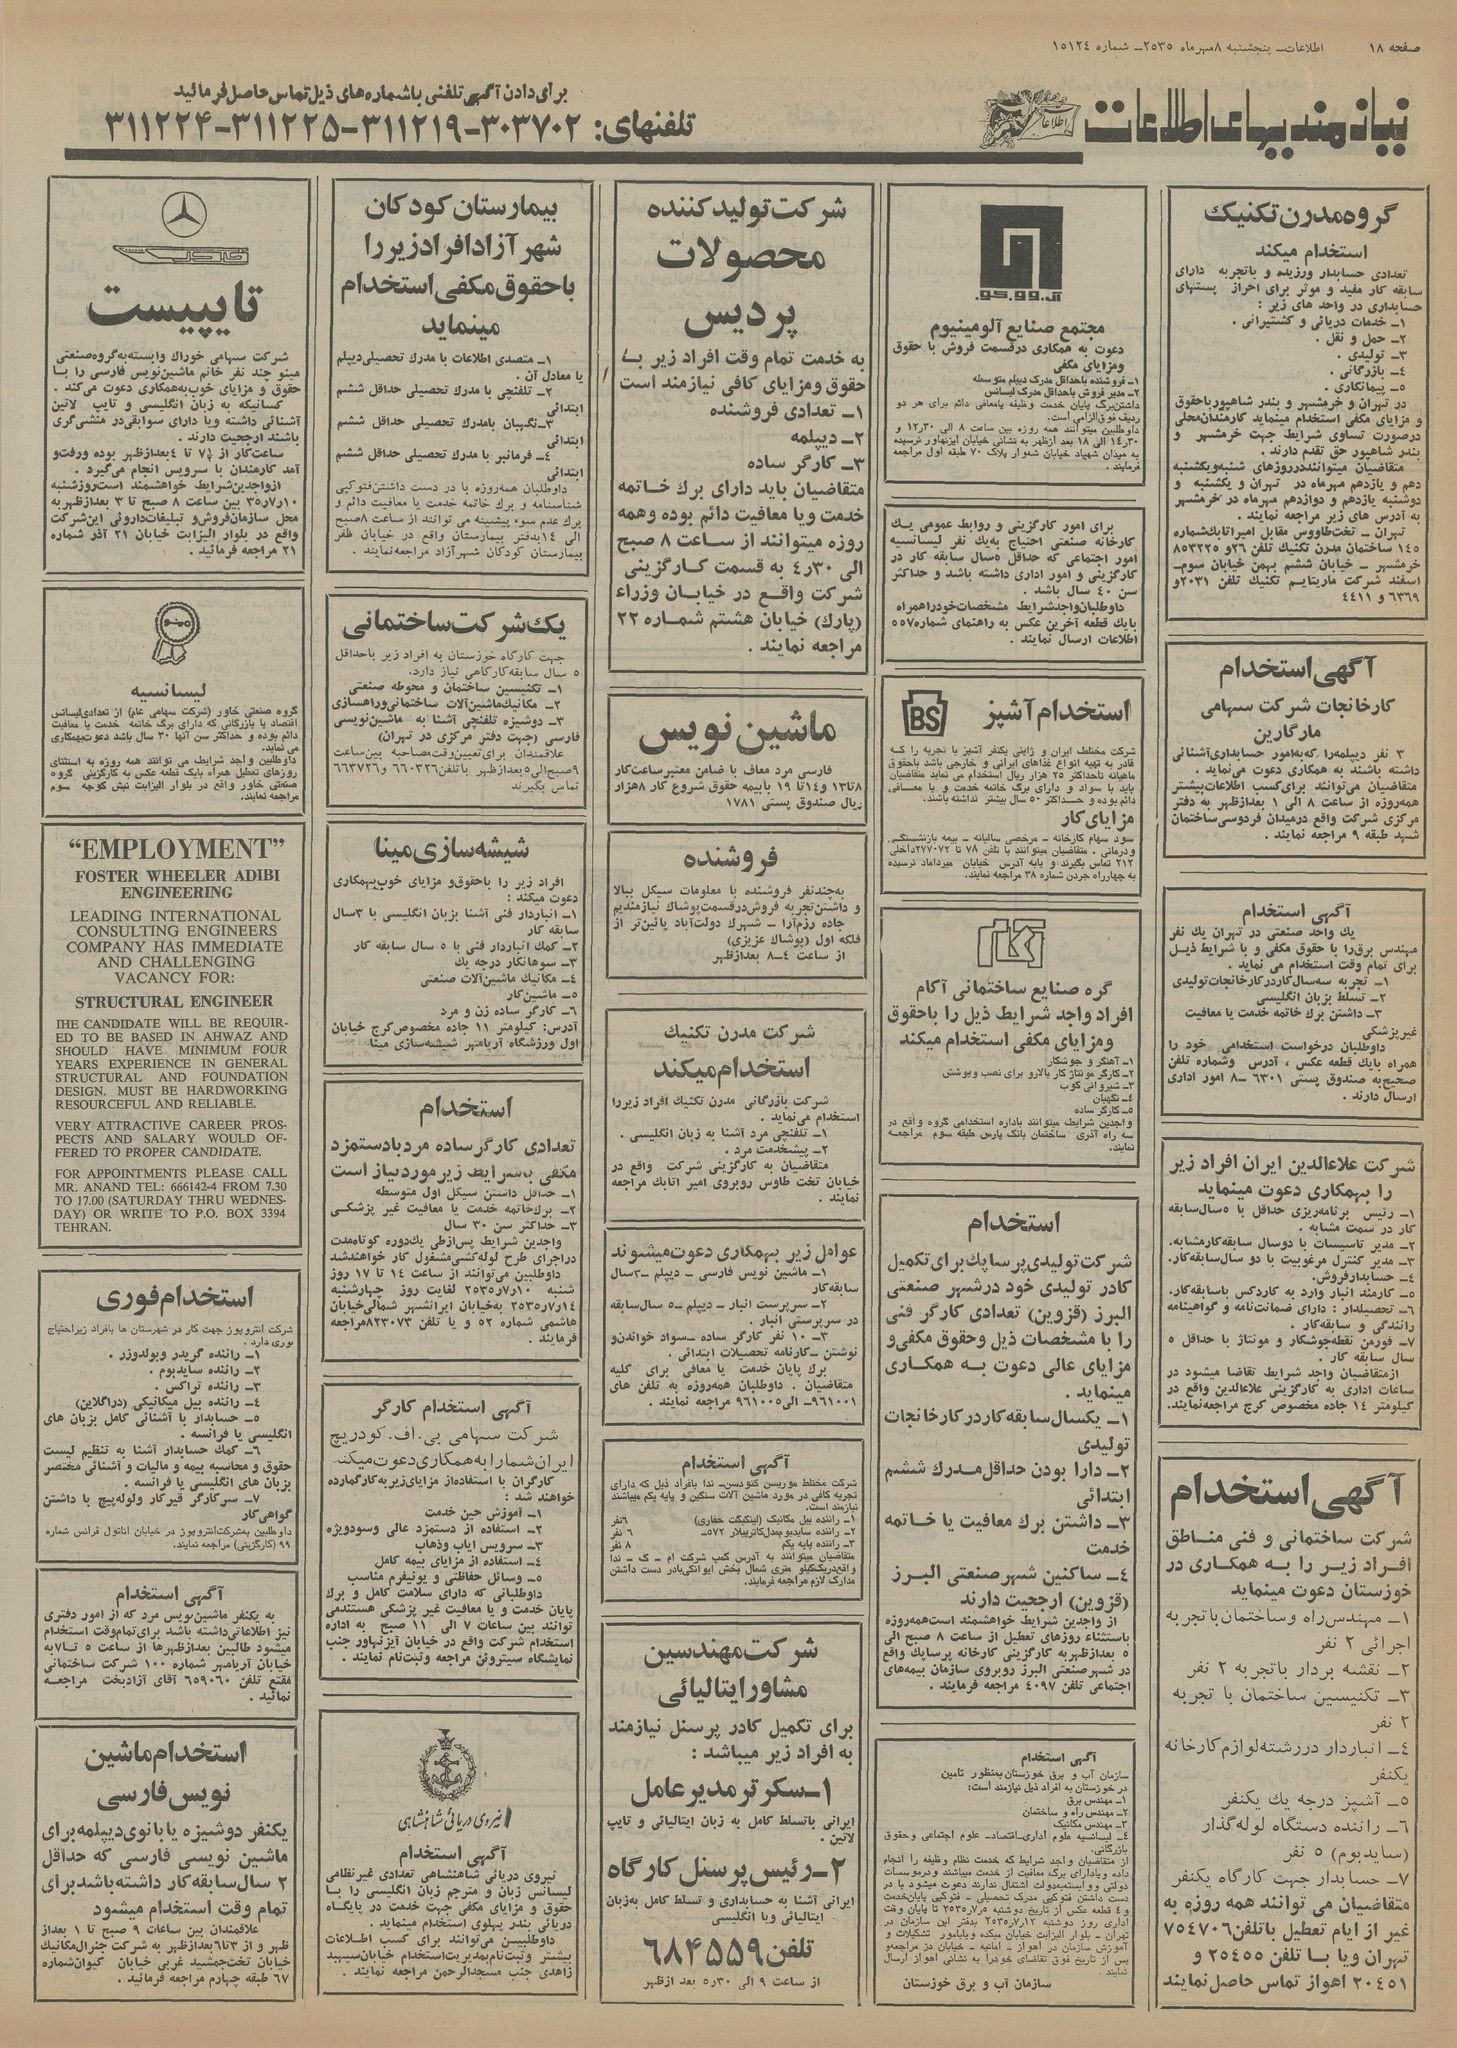 صفحه ۱۸
اطلاعات ـ پنجشنبه ۸ مهرماه ۲۵۳۵ ـ شماره ۱۵۱۲۴
نیازمندیهای اطلاعات
برای دادن آگهی تلفنی با شماره‌های ذیل تماس حاصل فرمائید
تلفنهای: ۳۰۳۷۰۲-۳۱۱۲۱۹-۳۱۱۲۲۵-۳۱۱۲۲۴
گروه مدرن تکنیک
استخدام میکند
تعدادی حسابدار ورزیده و باتجربه دارای
سابقه کار مفید و موثر برای احراز پستهای
حسابداری در واحد های زیر :
۱ـ خدمات دریائی و کشتیرانی .
۲ـ حمل و نقل .
۳ـ تولیدی .
۴ـ بازرگانی .
۵ـ پیمانکاری .
در تهران و خرمشهر و بندر شاهپور باحقوق
و مزایای مکفی استخدام مینماید کارمندان محلی
درصورت تساوی شرایط جهت خرمشهر و
بندر شاهپور حق تقدم دارند .
متقاضیان میتوانند درروزهای شنبه ویکشنبه
دهم و یازدهم مهرماه در تهران و یکشنبه و
دوشنبه یازدهم و دوازدهم مهرماه در خرمشهر
به آدرس های زیر مراجعه نمایند .
تهران ـ تخت طاووس مقابل امیر اتابک شماره
۱۴۵ ساختمان مدرن تکنیک تلفن ۲۶و ۸۵۳۲۲۵
خرمشهر ـ خیابان ششم بهمن خیابان سوم ـ
اسفند شرکت ماریتایم تکنیک تلفن ۲۰۳۱و
۶۳۶۹ و ۴۴۱۱
آگهی استخدام
کارخانجات شرکت سهامی
مارگارین
۳ نفر دیپلمه را که به امور حسابداری آشنائی
داشته باشند به همکاری دعوت می‌نماید .
متقاضیان می‌توانند برای کسب اطلاعات بیشتر
همه‌روزه از ساعت ۸ الی ۱ بعدازظهر به دفتر
مرکزی شرکت واقع درمیدان فردوسی ساختمان
شهد طبقه ۹ مراجعه نمایند .
آگهی استخدام
یک واحد صنعتی در تهران یک نفر
مهندس برق را با حقوق مکفی و با شرایط ذیل
برای تمام وقت استخدام می نماید .
۱ـ تجربه سه سال کار در کارخانجات تولیدی
۲ـ تسلط بزبان انگلیسی
۳ـ داشتن برک خاتمه خدمت یا معافیت
غیر پزشکی
داوطلبان درخواست استخدامی خود را
همراه بایک قطعه عکس ، آدرس وشماره تلفن
صحیح به صندوق پستی ۶۳۰۱ ـ ۸ امور اداری
ارسال دارند .
شرکت علاءالدین ایران افراد زیر
را بهمکاری دعوت مینماید
۱ـ رئیس برنامه‌ریزی حداقل با ۵ سال سابقه
کار در سمت مشابه .
۲ـ مدیر تاسیسات با دو سال سابقه کار مشابه.
۳ـ مدیر کنترل مرغوبیت با دو سال سابقه کار.
۴ـ حسابدار فروش.
۵ـ کارمند انبار وارد به کاردکس باسابقه کار.
۶ـ تحصیلدار : دارای ضمانت نامه و گواهینامه
رانندگی و سابقه کار .
۷ـ فورمن نقطه جوشکار و مونتاژ با حداقل ۵
سال سابقه کار .
از متقاضیان واجد شرایط تقاضا میشود در
ساعات اداری به کارگزینی علاءالدین واقع در
کیلومتر ۱۴ جاده مخصوص کرج مراجعه نمایند.
آگهی استخدام
شرکت ساختمانی و فنی مناطق
افراد زیر را به همکاری در
خوزستان دعوت مینماید
۱ـ مهندس راه وساختمان باتجربه
اجرائی ۲ نفر
۲ـ نقشه بردار باتجربه ۲ نفر
۳ـ تکنیسین ساختمان با تجربه
۲ نفر
۴ـ انباردار در رشته لوازم کارخانه
یکنفر
۵ـ آشپز درجه یک یکنفر
۶ـ راننده دستگاه لوله گذار
(سایدبوم) ۵ نفر
۷ـ حسابدار جهت کارگاه یکنفر
متقاضیان می توانند همه روزه به
غیر از ایام تعطیل با تلفن ۷۵۴۷۰۶
تهران ویا با تلفن ۲۵۴۵۵ و
۲۰۴۵۱ اهواز تماس حاصل نمایند
آل.وو.کو.
مجتمع صنایع آلومینیوم
دعوت به همکاری درقسمت فروش با حقوق
ومزایای مکفی
۱ـ فروشنده باحداقل مدرک دیپلم متوسطه
۲ـ مدیر فروش باحداقل مدرک لیسانس
داشتن برگ پایان خدمت وظیفه یامعافی دائم برای هر دو
ردیف فوق الزامی است.
داوطلبین میتوانند همه روزه بین ساعت ۸ الی ۱۲ر۳۰ و
۱۴ر۳۰ الی ۱۸ بعد ازظهر به نشانی خیابان آیزنهاور نرسیده
به میدان شهیاد خیابان شهوار پلاک ۷۰ طبقه اول مراجعه
فرمایند .
برای امور کارگزینی و روابط عمومی یک
کارخانه صنعتی احتیاج به یک نفر لیسانسیه
امور اجتماعی که حداقل ۵سال سابقه کار در
کارگزینی و امور اداری داشته باشد و حداکثر
سن ۴۰ سال باشد .
داوطلبان واجد شرایط مشخصات خود را همراه
بایک قطعه آخرین عکس به راهنمای شماره ۵۵۷
اطلاعات ارسال نمایند .
BS
استخدام آشپز
شرکت مختلط ایران و ژاپنی یکنفر آشپز با تجربه را که
قادر به تهیه انواع غذاهای ایرانی و خارجی باشد باحقوق
ماهیانه تاحداکثر ۲۵ هزار ریال استخدام می نماید متقاضیان
باید با سواد و دارای برگ خاتمه خدمت و یا معافی
دائم بوده و حداکثر ۵۰ سال بیشتر نداشته باشند.
مزایای کار
سود سهام کارخانه ـ مرخصی سالیانه ـ بیمه بازنشستگی
ودرمانی . متقاضیان میتوانند با تلفن ۷۸ تا ۲۷۷۰۷۲ داخلی
۲۱۲ تماس بگیرند و یابه آدرس خیابان میرداماد نرسیده
به چهارراه جردن شماره ۳۸ مراجعه نمایند.
گره صنایع ساختمانی آکام
افراد واجد شرایط ذیل را باحقوق
ومزایای مکفی استخدام میکند
۱ـ آهنگر و جوشکار
۲ـ کارگر مونتاژ کار بالارو برای نصب وپوشش
۳ـ شیروانی کوب
۴ـ نگهبان
۵ـ کارگر ساده
واجدین شرایط میتوانند باداره استخدامی گروه واقع در
سه راه آذری ساختمان بانک پارس طبقه سوم مراجعه
نمایند.
استخدام
شرکت تولیدی پرساپک برای تکمیل
کادر تولیدی خود درشهر صنعتی
البرز (قزوین) تعدادی کارگر فنی
را با مشخصات ذیل وحقوق مکفی و
مزایای عالی دعوت به همکاری
مینماید .
۱ـ یکسال سابقه کار در کارخانجات
تولیدی
۲ـ دارا بودن حداقل مدرک ششم
ابتدائی
۳ـ داشتن برک معافیت یا خاتمه
خدمت
۴ـ ساکنین شهر صنعتی البرز
(قزوین) ارجحیت دارند
از واجدین شرایط خواهشمند است همه‌روزه
باستثناء روزهای تعطیل از ساعت ۸ صبح الی
۵ بعدازظهر به کارگزینی کارخانه پرساپک واقع
در شهر صنعتی البرز روبروی سازمان بیمه‌های
اجتماعی تلفن ۴۰۹۷ مراجعه فرمایند .
آگهی استخدام
سازمان آب و برق خوزستان بمنظور تامین
در خوزستان به افراد ذیل نیازمند است:
۱ـ مهندس برق
۲ـ مهندس راه و ساختمان
۳ـ مهندس مکانیک
۴ـ لیسانسیه علوم اداری ـ اقتصاد ـ علوم اجتماعی و حقوق
بازرگانی.
از متقاضیان واجد شرایط که خدمت نظام وظیفه را انجام
داده ویادارای برگ معافیت از خدمت میباشند ودرموسسات
دولتی ووابسته بدولت اشتغال ندارند دعوت میشود با در
دست داشتن فتوکپی مدرک تحصیلی ـ فتوکپی پایان خدمت
و ۴ قطعه عکس از تاریخ دوشنبه ۵ر۷ر۲۵۳۵ تا پایان وقت
اداری روز دوشنبه ۱۲ر۷ر۲۵۳۵ بدفتر این سازمان در
تهران ـ بلوار الیزابت خیابان میکده ویابامور تشکیلات و
آموزش سازمان در اهواز ـ امانیه ـ خیابان دز مراجعه و
پس از تاریخ فوق تقاضای خود را به نشانی اهواز ارسال
نمایند .
سازمان آب و برق خوزستان
شرکت تولیدکننده
محصولات
پردیس
به خدمت تمام وقت افراد زیر با
حقوق ومزایای کافی نیازمند است
۱ـ تعدادی فروشنده
۲ـ دیپلمه
۳ـ کارگر ساده
متقاضیان باید دارای برک خاتمه
خدمت ویا معافیت دائم بوده وهمه
روزه میتوانند از ساعت ۸ صبح
الی ۴ر۳۰ به قسمت کارگزینی
شرکت واقع در خیابان وزراء
(پارک) خیابان هشتم شماره ۲۲
مراجعه نمایند .
ماشین نویس
فارسی مرد معاف با ضامن معتبر ساعت کار
۸تا۱۳ و۱۴تا ۱۹ بابیمه حقوق شروع کار ۸هزار
ریال صندوق پستی ۱۷۸۱
فروشنده
به چند نفر فروشنده با معلومات سیکل ببالا
و داشتن تجربه فروش در قسمت پوشاک نیازمندیم
جاده رزم‌آرا ـ شهرک دولت‌آباد پائین‌تر از
فلکه اول (پوشاک عزیزی)
از ساعت ۴ـ۸ بعدازظهر
شرکت مدرن تکنیک
استخدام میکند
شرکت بازرگانی مدرن تکنیک افراد زیر را
استخدام می‌نماید .
۱ـ تلفنچی مرد آشنا به زبان انگلیسی .
۲ـ پیشخدمت مرد .
متقاضیان به کارگزینی شرکت واقع در
خیابان تخت طاوس روبروی امیر اتابک مراجعه
نمایند .
عوامل زیر بهمکاری دعوت میشوند
۱ـ ماشین نویس فارسی ـ دیپلم ـ ۳سال
سابقه کار
۲ـ سرپرست انبار ـ دیپلم ـ ۵ سال سابقه
در سرپرستی انبار .
۳ـ ۱۰ نفر کارگر ساده ـ سواد خواندن و
نوشتن ـ کارنامه تحصیلات ابتدائی .
برک پایان خدمت یا معافی برای کلیه
متقاضیان . داوطلبان همه‌روزه به تلفن های
۹۶۱۰۰۱ـ الی ۹۶۱۰۰۵ مراجعه نمایند .
آگهی استخدام
شرکت مختلط موریسن کنودسن ـ ندا بافراد ذیل که دارای
تجربه کافی در مورد ماشین آلات سنگین و پایه یکم میباشند
نیازمند است.
۱ـ راننده بیل مکانیک (لینکبلت حفاری) ۶نفر
۲ـ راننده سایدبوم مدل کاترپیلار ۵۷۲ـ ۶ نفر
۳ـ راننده پایه یکم ۸ نفر
متقاضیان میتوانند به آدرس کمپ شرکت ام ـ ک ـ ندا
واقع در یک کیلو متری شمال بخش ایوانکی بادر دست داشتن
مدارک لازم مراجعه فرمایند.
شرکت مهندسین
مشاور ایتالیائی
برای تکمیل کادر پرسنل نیازمند
به افراد زیر میباشد :
۱ـ سکرتر مدیر عامل
ایرانی باتسلط کامل به زبان ایتالیائی و تایپ
لاتین .
۲ـ رئیس پرسنل کارگاه
ایرانی آشنا به حسابداری و تسلط کامل به زبان
ایتالیائی ویا انگلیسی
تلفن ۶۸۴۵۵۹
از ساعت ۹ الی ۵ر۳۰ بعد ازظهر
بیمارستان کودکان
شهر آزاد افراد زیر را
با حقوق مکفی استخدام
مینماید
۱ـ متصدی اطلاعات با مدرک تحصیلی دیپلم
یا معادل آن .
۲ـ تلفنچی با مدرک تحصیلی حداقل ششم
ابتدائی
۳ـ نگهبان بامدرک تحصیلی حداقل ششم
ابتدائی
۴ـ فرمانبر با مدرک تحصیلی حداقل ششم
ابتدائی
داوطلبان همه‌روزه با در دست داشتن فتوکپی
شناسنامه و برک خاتمه خدمت یا معافیت دائم و
برک عدم سوء پیشینه می توانند از ساعت ۸صبح
الی ۱۴ بدفتر بیمارستان واقع در خیابان ظفر
بیمارستان کودکان شهر آزاد مراجعه نمایند .
یک شرکت ساختمانی
جهت کارگاه خوزستان به افراد زیر باحداقل
۵ سال سابقه کارگاهی نیاز دارد.
۱ـ تکنیسین ساختمان و محوطه صنعتی
۲ـ مکانیک ماشین‌آلات ساختمانی و راهسازی
۳ـ دوشیزه تلفنچی آشنا به ماشین‌نویسی
فارسی (جهت دفتر مرکزی در تهران)
علاقمندان برای تعیین وقت مصاحبه بین ساعت
۹صبح الی۵ بعدازظهر باتلفن ۶۶۰۳۲۶ و ۶۶۳۷۲۶
تماس بگیرند
شیشه سازی مینا
افراد زیر را باحقوق و مزایای خوب بهمکاری
دعوت میکند :
۱ـ انباردار فنی آشنا بزبان انگلیسی با ۳سال
سابقه کار
۲ـ کمک انباردار فنی با ۵ سال سابقه کار
۳ـ سوهانکار درجه یک
۴ـ مکانیک ماشین‌آلات صنعتی
۵ـ ماشین کار
۶ـ کارگر ساده زن و مرد
آدرس: کیلومتر ۱۱ جاده مخصوص کرج خیابان
اول ورزشگاه آریامهر شیشه سازی مینا
استخدام
تعدادی کارگر ساده مرد بادستمزد
مکفی باشرایط زیر مورد نیاز است
۱ـ حداقل داشتن سیکل اول متوسطه
۲ـ برک خاتمه خدمت یا معافیت غیر پزشکی
۳ـ حداکثر سن ۳۰ سال
واجدین شرایط پس از طی یک دوره کوتاه مدت
دراجرای طرح لوله کشی مشغول کار خواهند شد
داوطلبین می‌توانند از ساعت ۱۴ تا ۱۷ روز
شنبه ۱۰ر۷ر۲۵۳۵ لغایت روز چهارشنبه
۱۴ر۷ر۲۵۳۵ به خیابان ایرانشهر شمالی خیابان
هاشمی شماره ۵۲ و یا تلفن ۸۲۳۰۷۳ مراجعه
فرمایند .
آگهی استخدام کارگر
شرکت سهامی بی.اف.گودریچ
ایران شمارا به همکاری دعوت میکند
کارگران با استفاده از مزایای زیر به کار گمارده
خواهند شد :
۱ـ آموزش حین خدمت
۲ـ استفاده از دستمزد عالی وسود ویژه
۳ـ سرویس ایاب وذهاب
۴ـ استفاده از مزایای بیمه کامل
۵ـ وسائل حفاظتی و یونیفرم مناسب
داوطلبانی که دارای سلامت کامل و برک
پایان خدمت و یا معافیت غیر پزشکی هستند می
توانند بین ساعات ۷ الی ۱۱ صبح به اداره
استخدام شرکت واقع در خیابان آیزنهاور جنب
نمایشگاه سیتروئن مراجعه و ثبت نام نمایند .
نیروی دریائی شاهنشاهی
آگهی استخدام
نیروی دریائی شاهنشاهی تعدادی غیر نظامی
لیسانس زبان و مترجم زبان انگلیسی را با
حقوق و مزایای مکفی جهت خدمت در پایگاه
دریائی بندر پهلوی استخدام مینماید .
داوطلبین می‌توانند برای کسب اطلاعات
بیشتر وثبت نام بمدیریت استخدام خیابان سپهبد
زاهدی جنب مسجدالرحمن مراجعه نمایند .
خاور
تایپیست
شرکت سهامی خوراک وابسته به گروه صنعتی
مینو چند نفر خانم ماشین‌نویس فارسی را با
حقوق و مزایای خوب به همکاری دعوت می‌کند .
کسانیکه به زبان انگلیسی و تایپ لاتین
آشنائی داشته ویا دارای سوابقی در منشی گری
باشند ارجحیت دارند .
ساعت کار از ۷½ تا ۴ بعدازظهر بوده ورفت و
آمد کارمندان با سرویس انجام می‌گیرد .
از واجدین شرایط خواهشمند است روز شنبه
۱۰ر۷ر۳۵ بین ساعت ۸ صبح تا ۳ بعدازظهر به
محل سازمان فروش و تبلیغات داروئی این شرکت
واقع در بلوار الیزابت خیابان ۲۱ آذر شماره
۲۱ مراجعه فرمائید .
مینو
لیسانسیه
گروه صنعتی خاور (شرکت سهامی عام) از تعدادی لیسانس
اقتصاد یا بازرگانی که دارای برگ خاتمه خدمت یا معافیت
دائم بوده و حداکثر سن آنها ۳۰ سال باشد دعوت بهمکاری
می نماید.
داوطلبین واجد شرایط می توانند همه روزه به استثنای
روزهای تعطیل همراه بایک قطعه عکس به کارگزینی گروه
صنعتی خاور واقع در بلوار الیزابت نبش کوچه سوم
مراجعه نمایند.
“EMPLOYMENT”
FOSTER WHEELER ADIBI
ENGINEERING
LEADING INTERNATIONAL
CONSULTING ENGINEERS
COMPANY HAS IMMEDIATE
AND CHALLENGING
VACANCY FOR:
STRUCTURAL ENGINEER
IHE CANDIDATE WILL BE REQUIR-
ED TO BE BASED IN AHWAZ AND
SHOULD HAVE MINIMUM FOUR
YEARS EXPERIENCE IN GENERAL
STRUCTURAL AND FOUNDATION
DESIGN. MUST BE HARDWORKING
RESOURCEFUL AND RELIABLE.
VERY ATTRACTIVE CAREER PROS-
PECTS AND SALARY WOULD OF-
FERED TO PROPER CANDIDATE.
FOR APPOINTMENTS PLEASE CALL
MR. ANAND TEL: 666142-4 FROM 7.30
TO 17.00 (SATURDAY THRU WEDNES-
DAY) OR WRITE TO P.O. BOX 3394
TEHRAN.
استخدام فوری
شرکت انتروپوز جهت کار در شهرستان ها بافراد زیر احتیاج
فوری دارد .
۱ـ راننده گریدر وبولدوزر .
۲ـ راننده سایدبوم .
۳ـ راننده تراکس .
۴ـ راننده بیل میکانیکی (دراگلاین)
۵ـ حسابدار با آشنائی کامل بزبان های
انگلیسی یا فرانسه .
۶ـ کمک حسابدار آشنا به تنظیم لیست
حقوق و محاسبه بیمه و مالیات و آشنائی مختصر
بزبان های انگلیسی یا فرانسه .
۷ـ سرکارگر قیرکار ولوله پیچ با داشتن
گواهی کار
داوطلبین به شرکت انتروپوز در خیابان آناتول فرانس شماره
۹۹ (کارگزینی) مراجعه نمایند.
آگهی استخدام
به یکنفر ماشین‌نویس مرد که از امور دفتری
نیز اطلاعاتی داشته باشد برای تمام وقت استخدام
میشود طالبین بعدازظهرها از ساعت ۵ تا۷ به
خیابان آریامهر شماره ۱۰۰ شرکت ساختمانی
مقنع تلفن ۶۵۹۰۶۰ آقای آزادبخت مراجعه
نمائید .
استخدام ماشین
نویس فارسی
یکنفر دوشیزه یا بانوی دیپلمه برای
ماشین نویسی فارسی که حداقل
۲ سال سابقه کار داشته باشد برای
تمام وقت استخدام میشود
علاقمندان بین ساعات ۹ صبح تا ۱ بعداز
ظهر و از ۳تا۶ بعدازظهر به شرکت جنرال مکانیک
خیابان تخت جمشید غربی خیابان کیوان شماره
۶۷ طبقه چهارم مراجعه فرمائید .